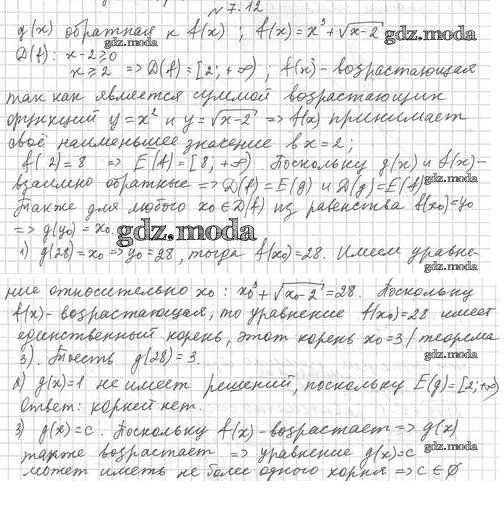 № 7.12
g(x) обратная к f(x) ; f(x) = x³ + √x-2
gdz.moda
gdz.moda
D(f): x-2≥0
x≥2 => D(f) = [2; +∞) ; f(x) - возрастающая
так как является суммой возрастающих
функций y = x² и y = √x-2 => f(x) принимает
своё наименьшее значение в x = 2;
f(2) = 8 => E(f) = [8; +∞). Поскольку g(x) и f(x)-
взаимно обратные => D(f) = E(g) и D(g) = E(f)
gdz.moda
Также для любого x₀ ∈ D(f) из равенства f(x₀) = y₀
=> g(y₀) = x₀
gdz.moda
gdz.moda
1) g(28) = x₀ => y₀ = 28, тогда f(x₀) = 28. Имеем уравне-
ние относительно x₀: x₀³ + √x₀-2 = 28. Поскольку
f(x) - возрастающая, то уравнение f(x₀) = 28 имеет
gdz.moda
единственный корень, этот корень x₀ = 3 / теорема
3). Тоесть g(28) = 3.
gdz.moda
2) g(x) = 1 не имеет решений, поскольку E(g) = [2; +∞)
Ответ: корней нет.
gdz.moda
3) g(x) = c. Поскольку f(x) - возрастает => g(x)
также возрастает => уравнение g(x) = c
gdz.moda
может иметь не более одного корня => c ∈ ∅